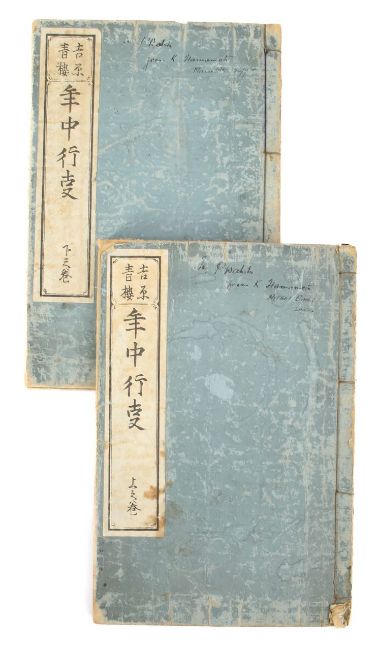 吉原
青樓
年中行叓
下之巻
from K. Hamamoto
吉原
青樓
年中行叓
上之巻
from K. Hamamoto